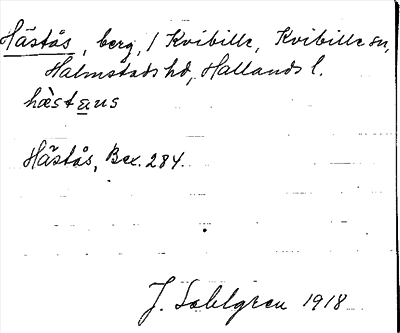 Hästås, berg, / Kvibille, Kvibille sn,
Halmstads hd, Hallands l.
hàstaus
Hästås, Bex. 284.
J. Sahlgren 1918